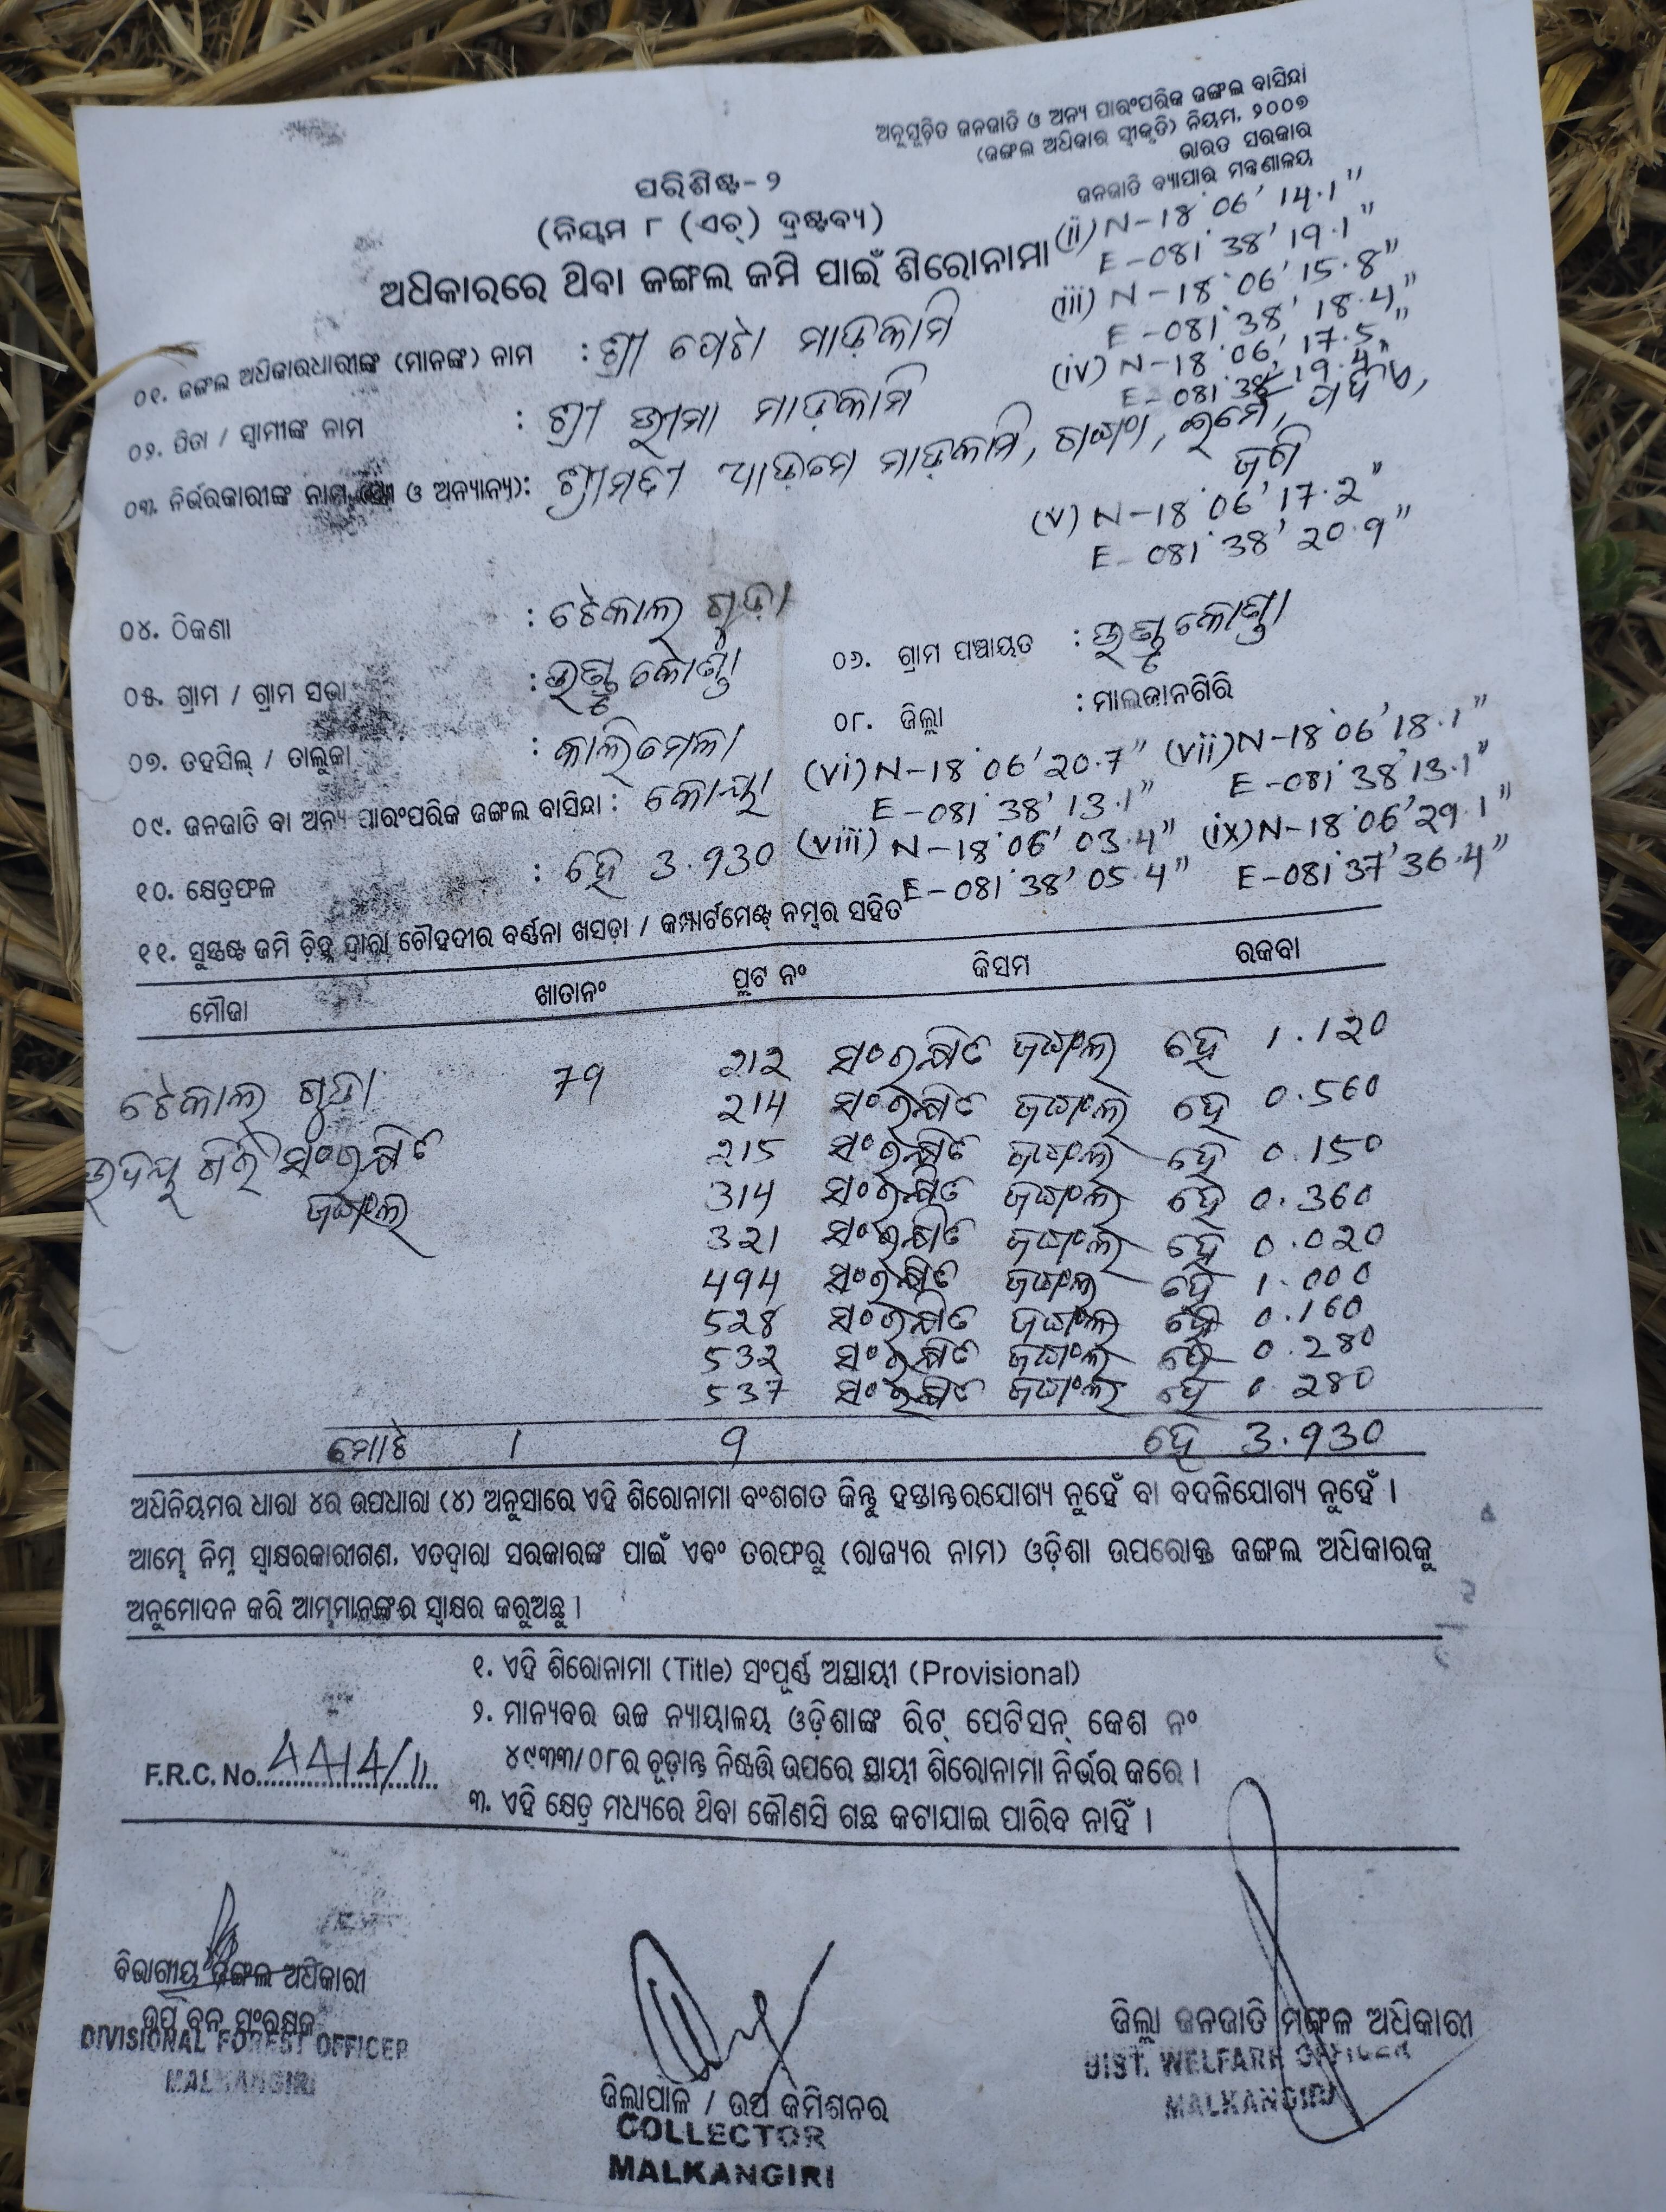 ଅନୁସୂଚିତ ଜନଜାତି ଓ ଅନ୍ୟ ପାରଂପରିକ ଜଙ୍ଗଲ ବାସିନ୍ଦା
(ଜଙ୍ଗଲ ଅଧିକାର ସ୍ୱୀକୃତି) ନିୟମ, ୨୦୦୭
ଭାରତ ସରକାର
ଜନଜାତି ବ୍ୟାପାର ମନ୍ତ୍ରଣାଳୟ
ପରିଶିଷ୍ଟ-୨
(ନିୟମ ୮ (ଏଚ୍) ଦ୍ରଷ୍ଟବ୍ୟ)
ଅଧିକାରରେ ଥିବା ଜଙ୍ଗଲ ଜମି ପାଇଁ ଶିରୋନାମା
(ii) N-18°06' 14.1"
E-081°38' 19.1"
(iii) N-18°06' 15.8"
E-081°38' 18.4"
(iv) N-18°06' 17.5"
E-081°38' 19.4"
୦୧. ଜଙ୍ଗଲ ଅଧିକାରଧାରୀଙ୍କ (ମାନଙ୍କ) ନାମ : ଶ୍ରୀ ପେଟା ମାଡ଼କାମି
୦୨. ପିତା / ସ୍ୱାମୀଙ୍କ ନାମ : ଶ୍ରୀ ଭୀମା ମାଡ଼କାମି
୦୩. ନିର୍ଭରକାରୀଙ୍କ ନାମ (ସ୍ତ୍ରୀ ଓ ଅନ୍ୟାନ୍ୟ): ଶ୍ରୀମତୀ ଆଡ଼ମେ ମାଡ଼କାମି, ଗଙ୍ଗା, ଇମେ,
(v) N-18°06' 17.2"
E-081°38' 20.9"
୦୪. ଠିକଣା : ଟେକାଲ ଗୁଡ଼ା
୦୫. ଗ୍ରାମ / ଗ୍ରାମ ସଭା : ଉଣ୍ଡୁକୋଣ୍ଡା
୦୬. ଗ୍ରାମ ପଞ୍ଚାୟତ : ଉଣ୍ଡୁକୋଣ୍ଡା
୦୭. ତହସିଲ୍ / ତାଲୁକା : କାଲିମେଳା
୦୮. ଜିଲ୍ଲା : ମାଲକାନଗିରି
୦୯. ଜନଜାତି ବା ଅନ୍ୟ ପାରଂପରିକ ଜଙ୍ଗଲ ବାସିନ୍ଦା : କୋୟା
(vi) N-18°06' 20.7" (vii) N-18°06' 18.1"
E-081°38' 13.1" E-081°38' 13.1"
୧୦. କ୍ଷେତ୍ରଫଳ : ହେ 3.930
(viii) N-18°06' 03.4" (ix) N-18°06' 29.1"
E-081°38' 05.4" E-081°37' 36.4"
୧୧. ସୁସ୍ପଷ୍ଟ ଜମି ଚିହ୍ନ ଦ୍ୱାରା ଚୌହଦୀର ବର୍ଣ୍ଣନା ଖସଡ଼ା / କମ୍ପାର୍ଟମେଣ୍ଟ ନମ୍ବର ସହିତ
ମୌଜା ଖାତାନଂ ପ୍ଲଟ ନଂ କିସମ ରକବା
ଟେକାଲ ଗୁଡ଼ା 79 212 ସଂରକ୍ଷିତ ଜଙ୍ଗଲ ହେ 1.120
214 ସଂରକ୍ଷିତ ଜଙ୍ଗଲ ହେ 0.560
ଉଦୟ ଗିରି ସଂରକ୍ଷିତ 215 ସଂରକ୍ଷିତ ଜଙ୍ଗଲ ହେ 0.150
ଜଙ୍ଗଲ 314 ସଂରକ୍ଷିତ ଜଙ୍ଗଲ ହେ 0.360
321 ସଂରକ୍ଷିତ ଜଙ୍ଗଲ ହେ 0.020
494 ସଂରକ୍ଷିତ ଜଙ୍ଗଲ ହେ 1.000
528 ସଂରକ୍ଷିତ ଜଙ୍ଗଲ ହେ 0.160
532 ସଂରକ୍ଷିତ ଜଙ୍ଗଲ ହେ 0.280
537 ସଂରକ୍ଷିତ ଜଙ୍ଗଲ ହେ 0.280
ମୋଟ 1 9 ହେ 3.930
ଅଧିନିୟମର ଧାରା ୪ର ଉପଧାରା (୪) ଅନୁସାରେ ଏହି ଶିରୋନାମା ବଂଶଗତ କିନ୍ତୁ ହସ୍ତାନ୍ତରଯୋଗ୍ୟ ନୁହେଁ ବା ବଦଳିଯୋଗ୍ୟ ନୁହେଁ ।
ଆମ୍ଭେ ନିମ୍ନ ସ୍ୱାକ୍ଷରକାରୀଗଣ, ଏତଦ୍ୱାରା ସରକାରଙ୍କ ପାଇଁ ଏବଂ ତରଫରୁ (ରାଜ୍ୟର ନାମ) ଓଡ଼ିଶା ଉପରୋକ୍ତ ଜଙ୍ଗଲ ଅଧିକାରକୁ
ଅନୁମୋଦନ କରି ଆମ୍ଭମାନଙ୍କର ସ୍ୱାକ୍ଷର କରୁଅଛୁ ।
୧. ଏହି ଶିରୋନାମା (Title) ସଂପୂର୍ଣ୍ଣ ଅସ୍ଥାୟୀ (Provisional)
୨. ମାନ୍ୟବର ଉଚ୍ଚ ନ୍ୟାୟାଳୟ ଓଡ଼ିଶାଙ୍କ ରିଟ୍ ପେଟିସନ୍ କେଶ ନଂ
୪୯୩୩/୦୮ର ଚୂଡ଼ାନ୍ତ ନିଷ୍ପତ୍ତି ଉପରେ ସ୍ଥାୟୀ ଶିରୋନାମା ନିର୍ଭର କରେ ।
F.R.C. No. 4414/11
୩. ଏହି କ୍ଷେତ୍ର ମଧ୍ୟରେ ଥିବା କୌଣସି ଗଛ କଟାଯାଇ ପାରିବ ନାହିଁ ।
ବିଭାଗୀୟ ଜଙ୍ଗଲ ଅଧିକାରୀ
ଉପ ବନ ସଂରକ୍ଷକ
DIVISIONAL FOREST OFFICER
MALKANGIRI
ଜିଲ୍ଲାପାଳ / ଉପ କମିଶନର
COLLECTOR
MALKANGIRI
ଜିଲ୍ଲା ଜନଜାତି ମଙ୍ଗଳ ଅଧିକାରୀ
DIST. WELFARE OFFICER
MALKANGIRI